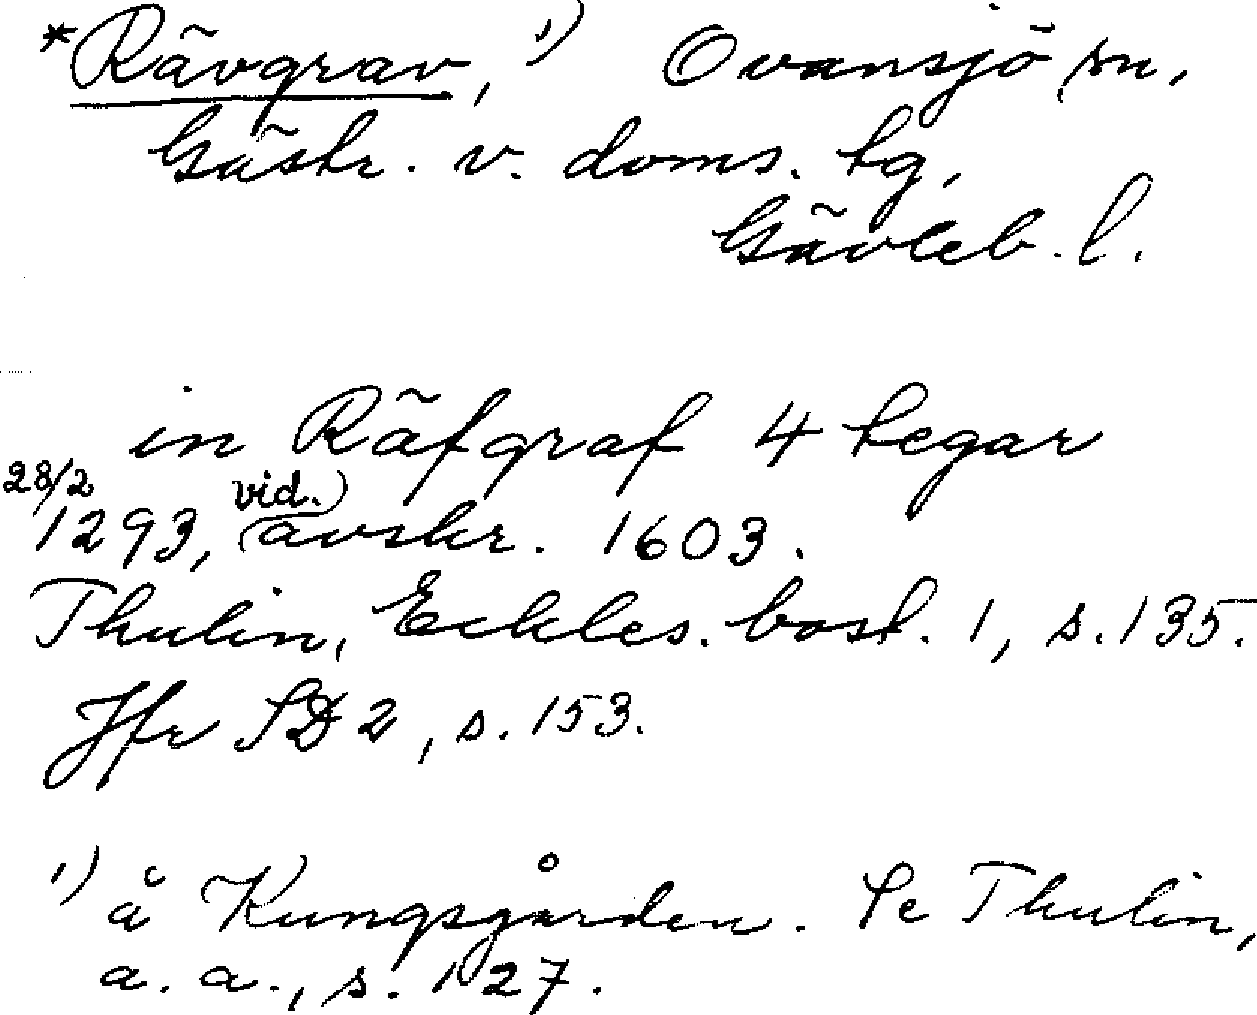 *Rävgrav, 1) Ovansjö sn,
Gästr. v. doms. tg,
Gävleb. l.
in Räfgraf 4 tegar
28/2
1293, (vid.) avskr. 1603.
Thulin, Eckles. bost. 1, s. 135.
Jfr SD 2, s. 153.
1) å Kungsgården. Se Thulin,
a. a., s. 127.